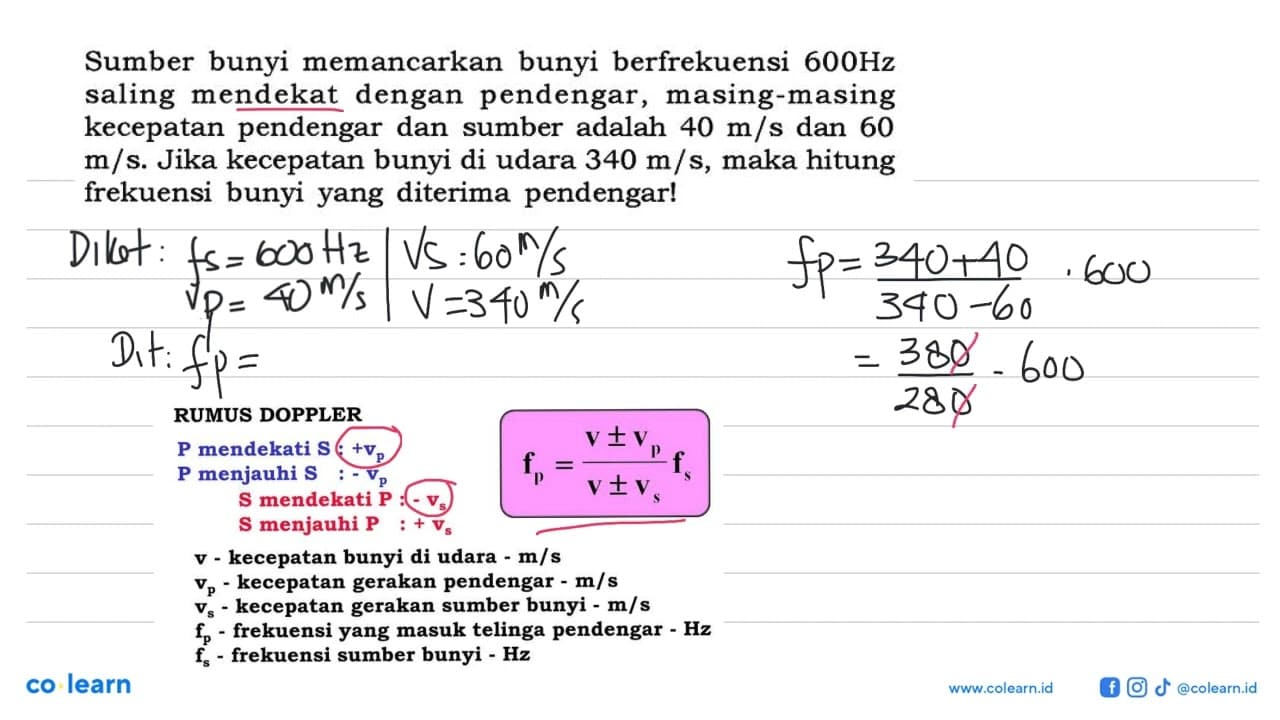 Sumber bunyi memancarkan bunyi berfrekuensi 600Hz
saling mendekat dengan pendengar, masing-masing
kecepatan pendengar dan sumber adalah 40 m/s dan 60
m/s. Jika kecepatan bunyi di udara 340 m/s, maka hitung
frekuensi bunyi yang diterima pendengar!
Diket: fs = 600 Hz | Vs : 60 m/s
Vp = 40 m/s | V = 340 m/s
Dit: fp =
fp = 340+40 . 600
340-60
= 380 . 600
280
RUMUS DOPPLER
P mendekati S : +vp
P menjauhi S : - vp
S mendekati P : - vs
S menjauhi P : + vs
fp = v ± vp fs
v ± vs
v - kecepatan bunyi di udara - m/s
vp - kecepatan gerakan pendengar - m/s
vs - kecepatan gerakan sumber bunyi - m/s
fp - frekuensi yang masuk telinga pendengar - Hz
fs - frekuensi sumber bunyi - Hz
co learn
www.colearn.id
@colearn.id